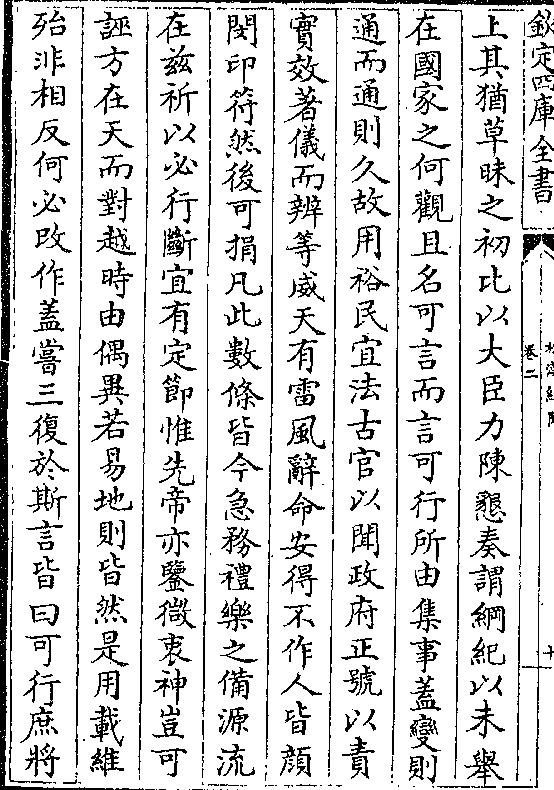 欽定四庫全書
卷二
十
上其猶草昧之初比以大臣力陳懇奏謂綱紀以未舉
在國家之何觀且名可言而言可行所由集事蓋變則
通而通則久故用裕民宜法古官以開政府正號以責
實效著儀而辨等威天有雷風辭命安得不作人皆顔
閔印符然後可捐凡此數條皆今急務禮樂之備源流
在兹祈以必行斷宜有定節惟先帝亦鑒微衷神豈可
誣方在天而對越時由偶異若易地則皆然是用載維
殆非相反何必改作蓋嘗三復於斯言皆曰可行庶將